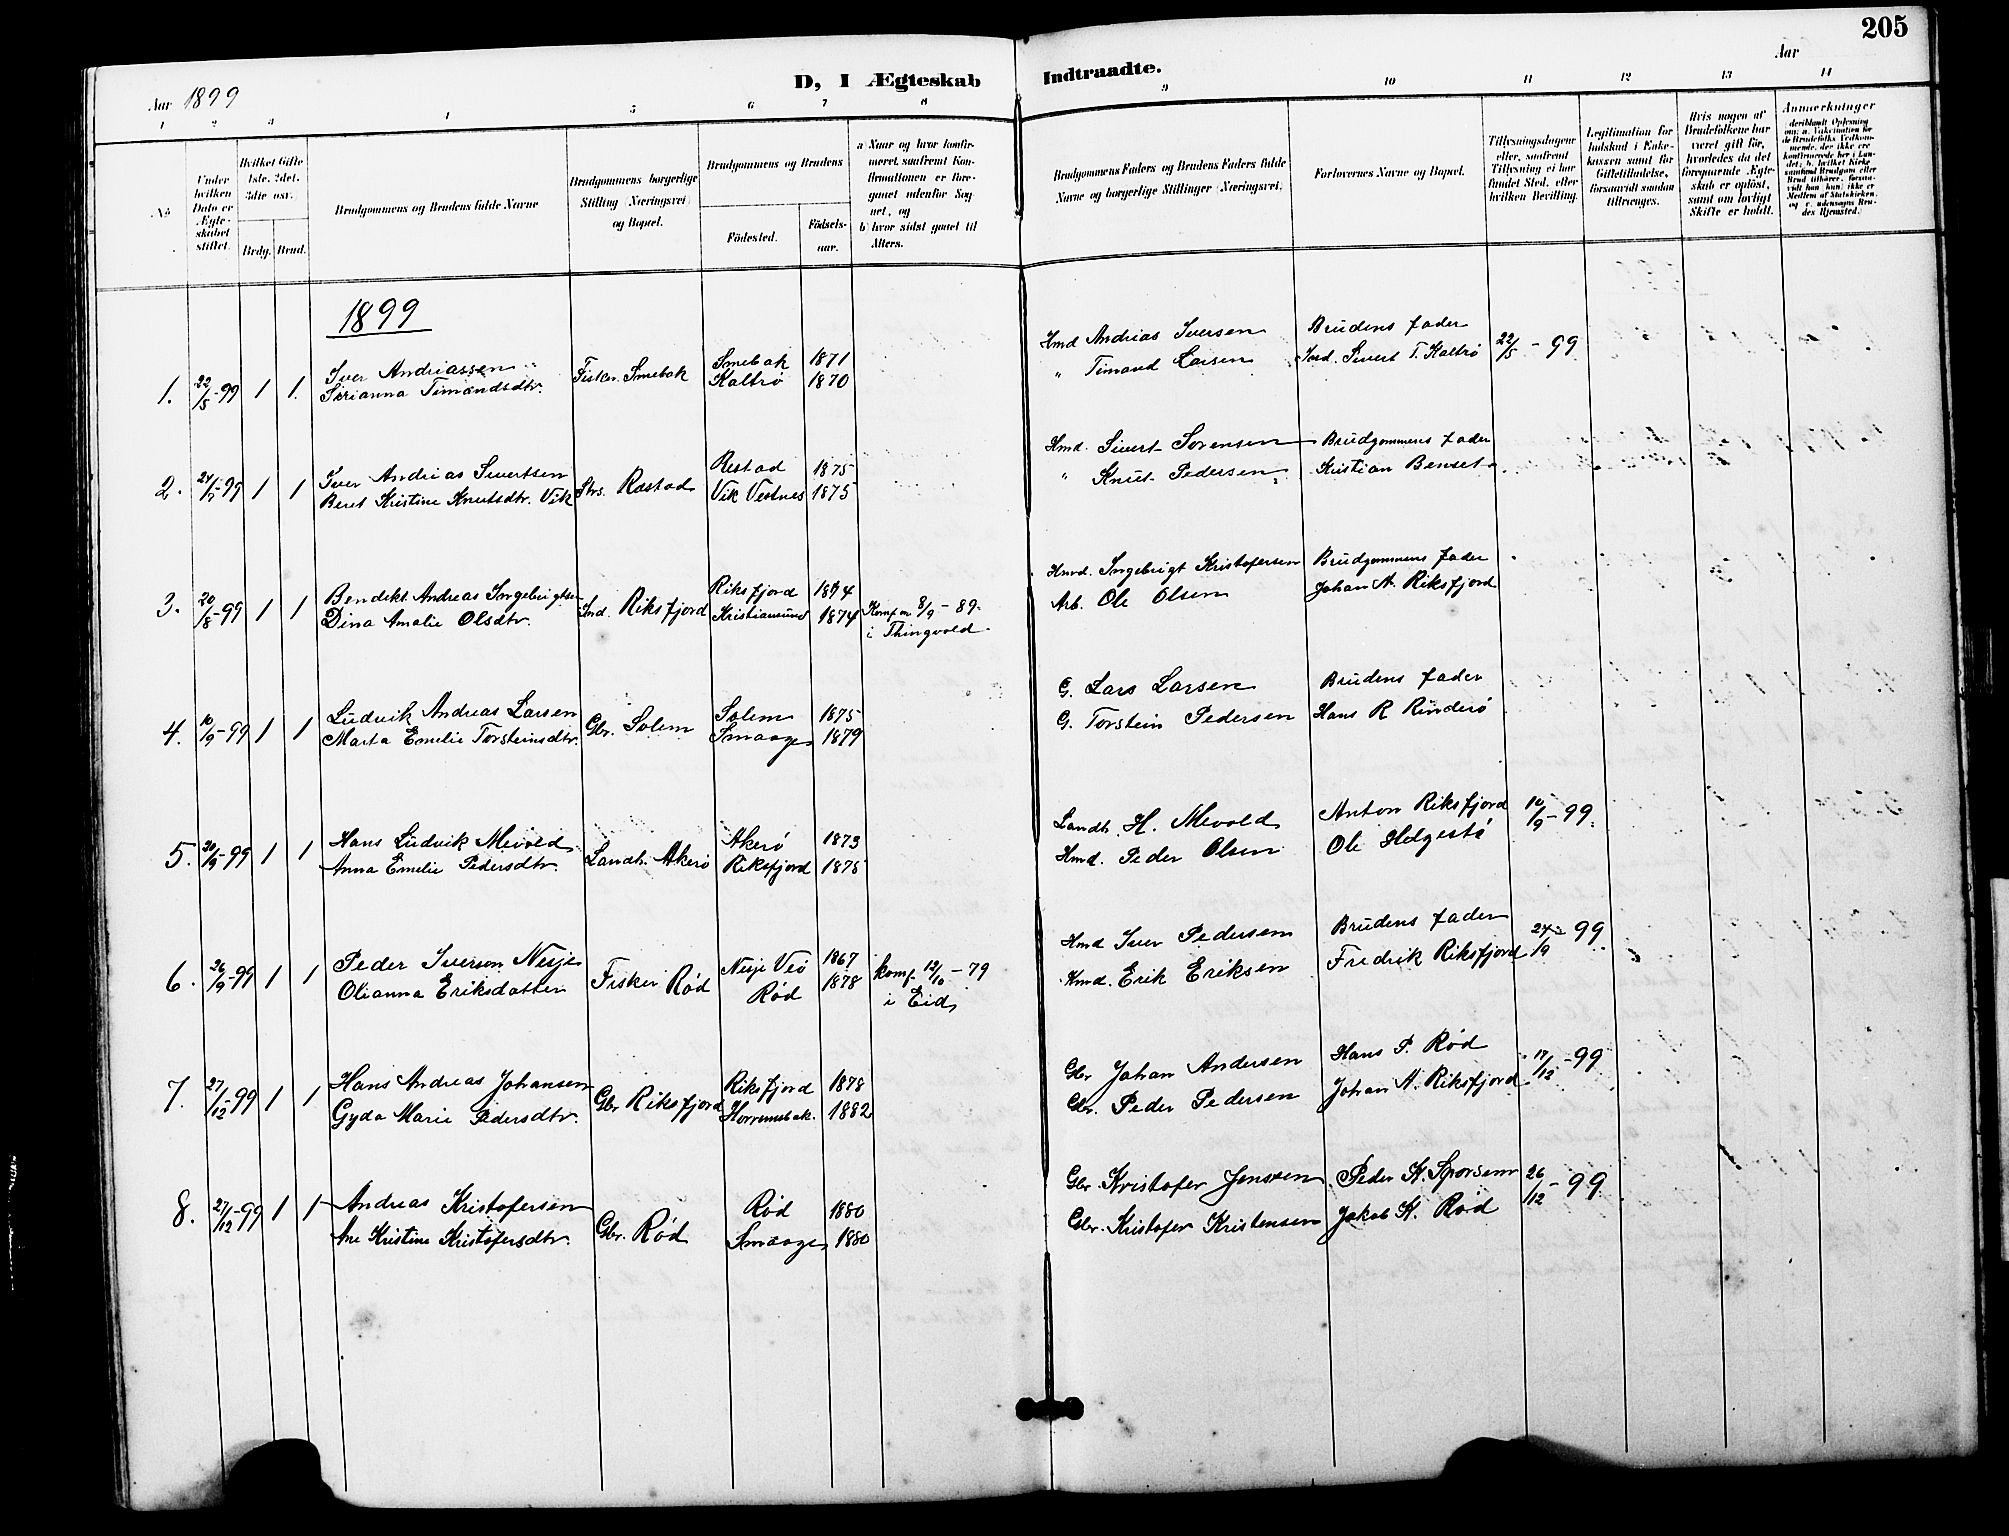 205
D, I Ægteskab Indtraadte.
Aar 1899
Aar
1 2 3 4 5 6 7 8 9 10 11 12 13 14
No
Under hvilken Dato er Ægteskabet stiftet.
Hvilket Gifte 1ste, 2det, 3die osv.
Brdg. Brud.
Brudgommens og Brudens fulde Navne
Brudgommens borgerlige Stilling (Næringsvei) og Bopæl.
Brudgommens og Brudens
Födested.
Födselsaar.
a Naar og hvor konfirmeret, saafremt Konfirmationen er foregaaet udenfor Sognet, og
b hvor sidst gaaet til Alters.
Brudgommens Faders og Brudens Faders fulde Navne og borgerlige Stillinger (Næringsvei.)
Forlovernes Navne og Bopæl.
Tillysningsdagene eller, saafremt Tillysning ei har fundet Sted, efter hvilken Bevilling.
Legitimation for Indskud i Enkekassen samt for Giftetilladelse, forsaavidt saadan tiltrænges.
Hvis nogen af Brudefolkene har været gift før, hvorledes da det foregaaende Ægteskab er oplöst, samt om lovligt Skifte er holdt.
Anmærkninger
1899
1. 22/5-99 1 1. Iver Andriassen Fisker Smebak Smebak 1871 Hmd Andrias Iversen Brudens fader 22/5 - 99
Serianna Timandsdtr. Kalbrø 1870 " Timand Larsen Ind. Sivert T. Kalbrø
2. 99 1 1 Iver Andrias Sivertsen Røstad Røstad 1875 Hmd. Sivert Sørensen Brudgommens fader
Beret Kristine Knutsdtr. Vik Vik Vestnes 1875 " Knut Pedersen Kristian Benset
3. 20/8-99 1 1 Bendikt Andreas Ingebrigtsen Ind. Riksfjord Riksfjord 1874 Hmd. Ingebrigt Kristofersen Brudgommens fader
Dina Amalie Olsdtr. Kristiansund 1874 Konf. 8/9 - 89. Arb. Ole Olsen Johan A. Riksfjord
i Thingvold
4. 10/9-99 1 1 Ludvik Andreas Larsen Gbr. Solem Solem 1875 G. Lars Larsen Brudens fader
Marta Emelie Torsteinsdtr. Smaage 1879 G. Torstein Pedersen Hans R Rinderö
5. 99 1 1 Hans Ludvik Mevold Landh. Akerö Akerö 1873 Landh. H. Mevold Anton Riksfjord 10/9-99.
Anna Emelie Pedersdtr. Riksfjord 1875 Hmd. Peder Olsen Ole Helgestø
6. 26/9-99 1 1 Peder Iversen Nesje Fisker Rød Nesje Veö 1867 konf. 12/10 - 79 Hmd Iver Pedersen Brudens fader 24/9 99
Olianna Eriksdatter Rød 1878 i Eid Hmd. Erik Eriksen Fredrik Riksfjord
7. 27/12-99 1 1 Hans Andreas Johansen Gbr Riksfjord Riksfjord 1878 Gbr Johan Andersen Hans P. Rød 17/12-99
Gyda Marie Pedersdtr. Horremsbak. 1882 Gbr. Peder Pedersen Johan A. Riksfjord
8. 27/12-99 1 1 Andreas Kristofersen Gbr. Rød Rød 1880 Gbr Kristofer Jensen Peder K. Sporsem 26/12-99
Ane Kristine Kristofersdtr. Smaage 1880 Gbr. Kristofer Kristensen Jakob K. Rød